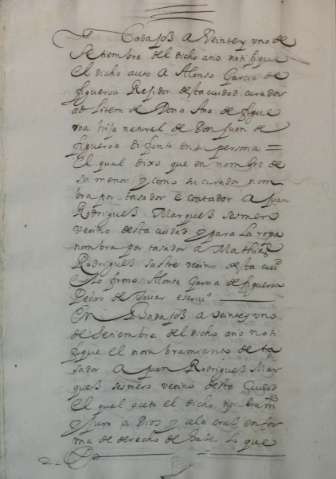 En Badajoz a Veinte y uno de
Setiembre del dicho año notifique
el dicho auto a Alonso Garcia de
figueroa Regidor desta ciudad curador
ad litem de Dona Ana de figue
roa hija natural de Don Juan de
figueroa difunto en su persona =
El qual dixo que en nombre de
su menor y como su curador nom
bra por tasador E contador a Juan
Rodrigues Marques
vecino desta ciudad y para la ropa
nombra por tasador a Mathias
Rodrigues sastre vecino desta ciud
y lo firmo Alonso Garcia de figueroa
Pedro de escriuº
En Badajoz a veinte y uno
de Setiembre del dicho año noti
fique el nombramiento de ta
sador a Juan Rodrigues Mar
ques vecino desta Ciudad
El qual aceto el dicho nombram
y juro a Dios y a la cruz en for
ma de derecho de hacer lo que